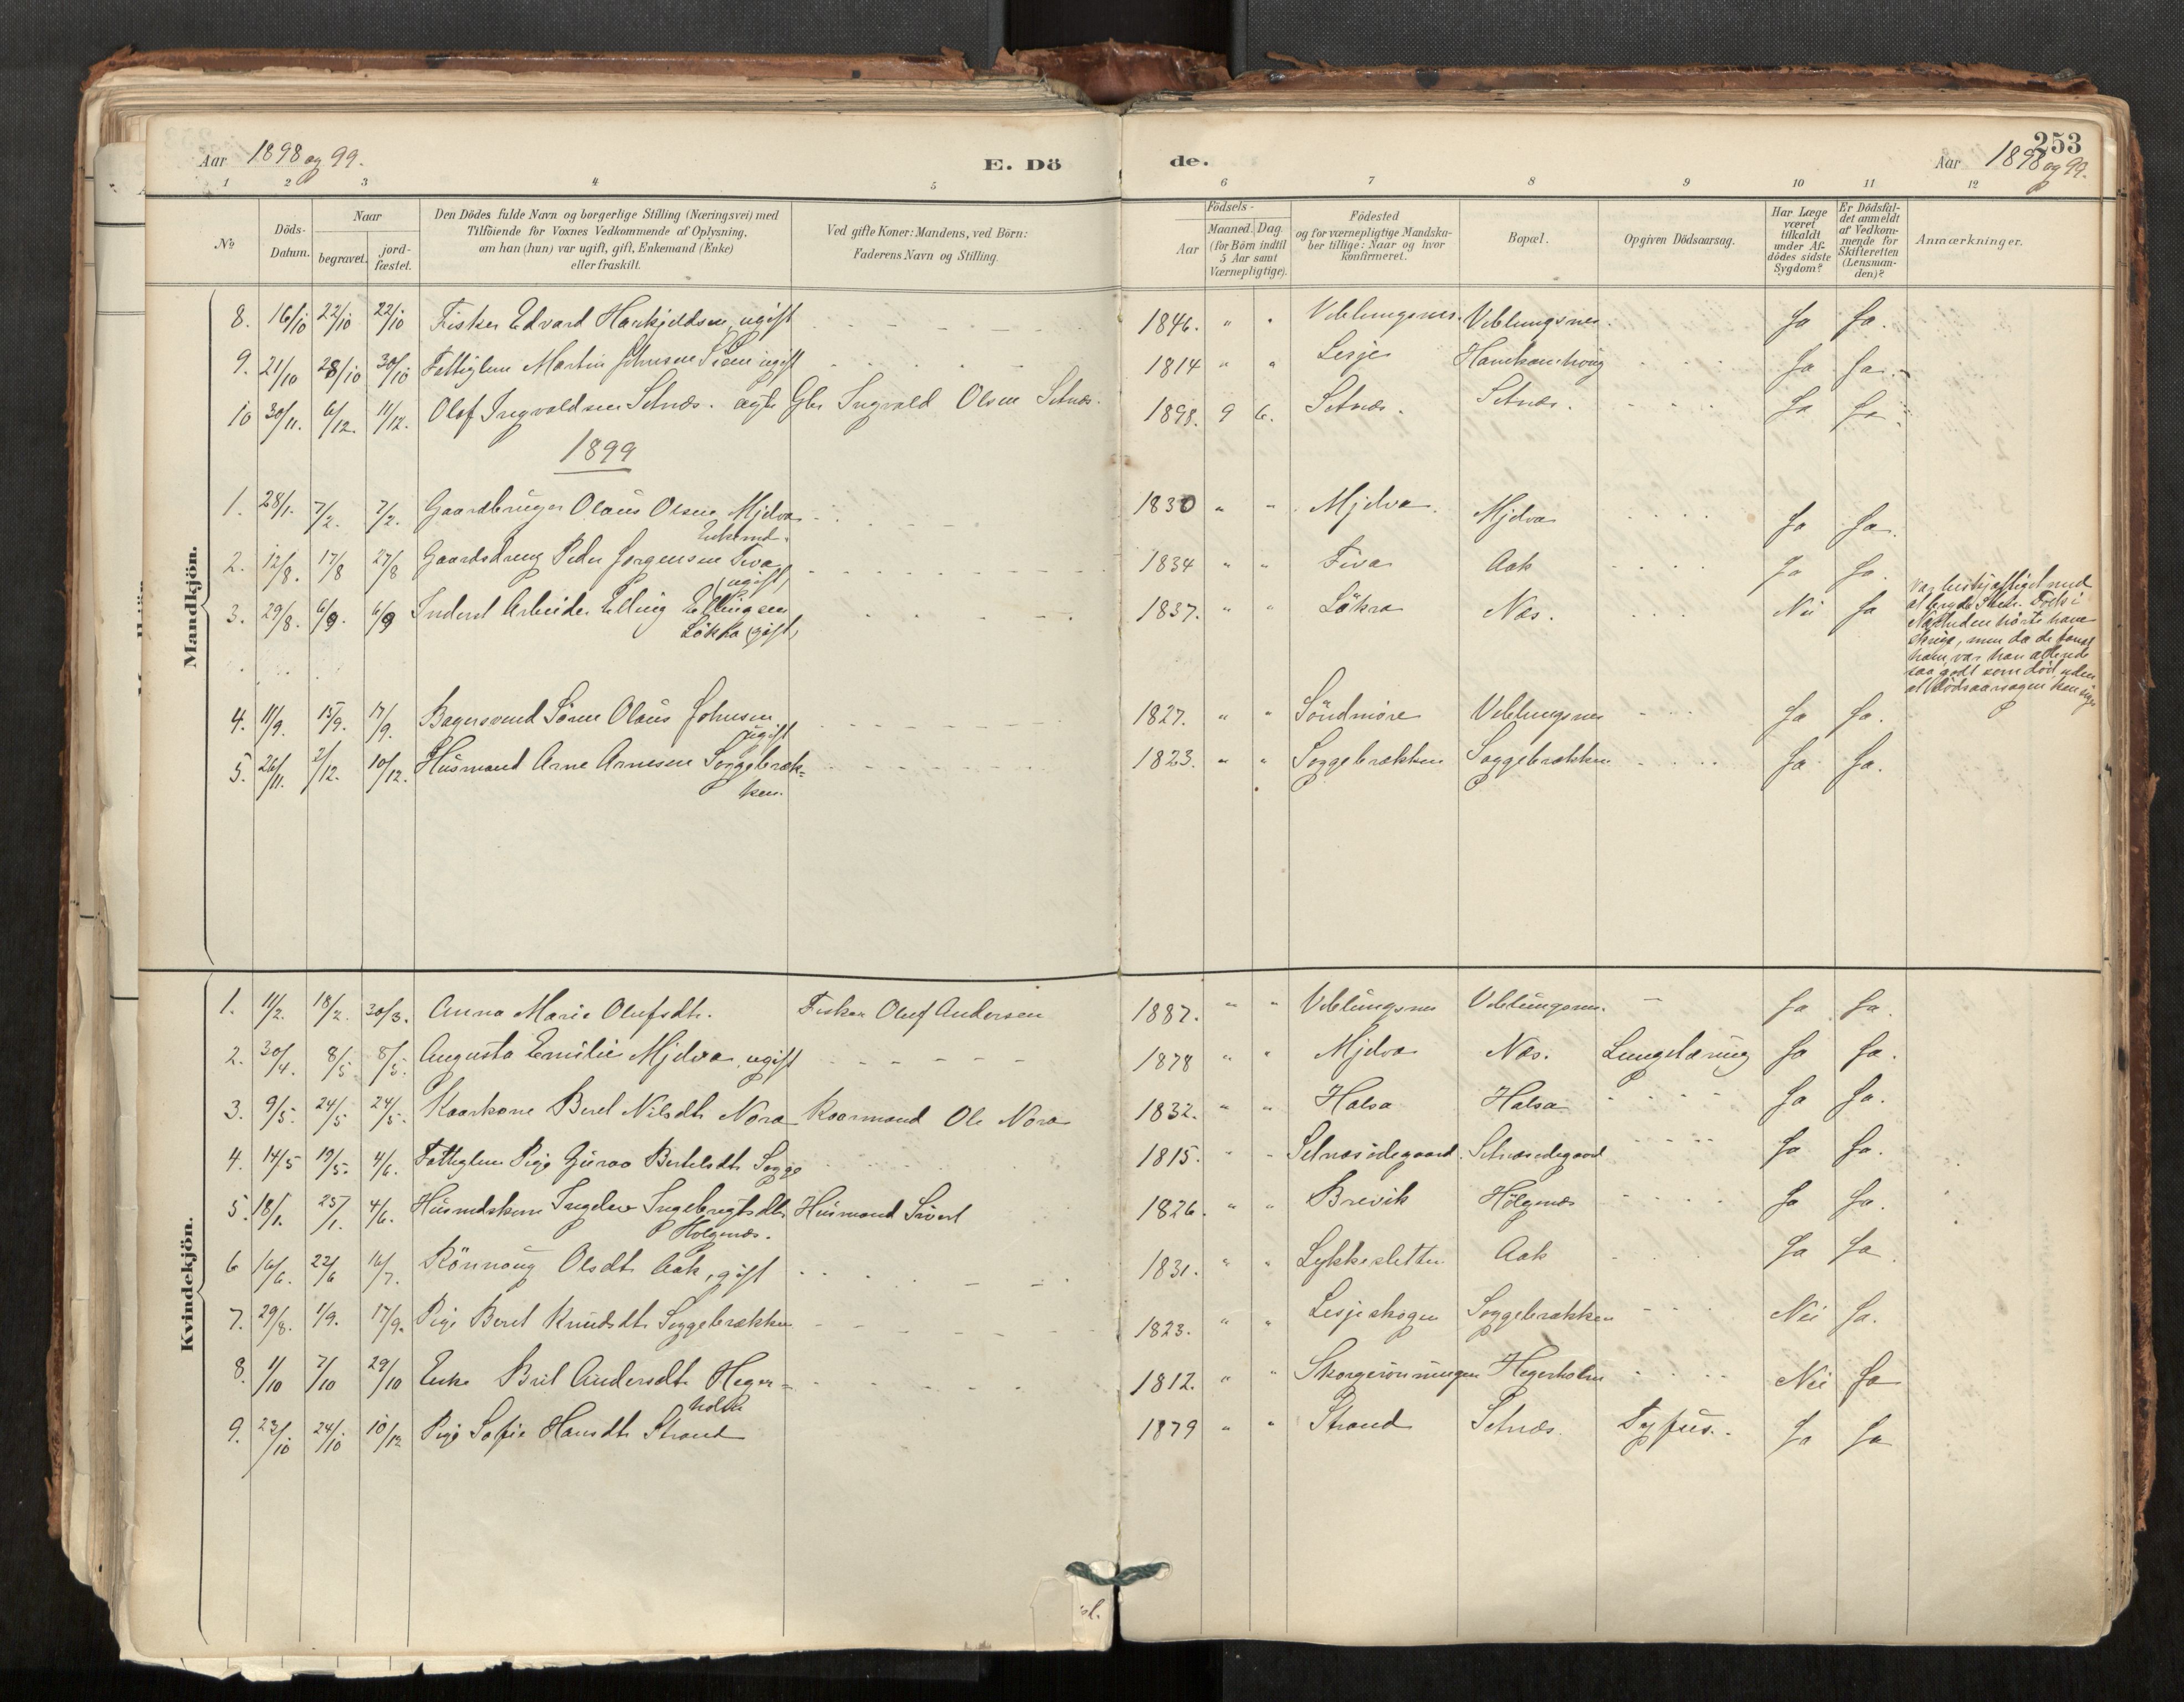 Aar 1898 og 99.
E. Dö
de.
253
Aar 1898 og 99.
1 2 3 4 5 6 7 8 9 10 11 12
№
Döds-Datum.
Naar
begravet.
jord-fæstet.
Den Dödes fulde Navn og borgerlige Stilling (Næringsvei) med
Tilföiende for Voxnes Vedkommende af Oplysning,
om han (hun) var ugift, gift, Enkemand (Enke)
eller fraskilt.
Ved gifte Koner: Mandens, ved Börn:
Faderens Navn og Stilling.
Födsels-
Aar
Maaned.
Dag.
(for Börn indtil
5 Aar samt
Værnepligtige).
Födested
og for værnepligtige Mandska-
ber tillige: Naar og hvor
konfirmeret.
Bopæl.
Opgiven Dödsaarsag.
Har Læge
været
tilkaldt
under Af-
dödes sidste
Sygdom?
Er Dödsfal-
det anmeldt
af Vedkom-
mende for
Skifteretten
(Lensman-
den)?
Anmærkninger.
Mandkjön.
8. 16/10 22/10 22/10 Fisker Edvard Harkjeldsen, ugift 1846. " " Veblungsnes. Veblungsnes. Ja Ja.
9. 21/10 28/10 30/10 Fattiglem Martin Johnsen ugift 1814 " " Lesje Ja Ja.
10 30/11. 6/12. 11/12. Olaf Ingvaldsen Setnæs. ægte Gbr Ingvald Olsen Setnæs. 1898. 9 6. Setnæs. Setnæs. Ja Ja
1899
1. 28/1. 7/2. 7/2. Gaardbruger Olaus Olsen Mjelva 1830 " " Mjelva. Mjelva Ja Ja.
Enkemd.
2. 12/8. 17/8 27/8 Gaardsdreng Peder Jørgensen Fiva 1834 " " Fiva Aak Ja Ja.
(ugift)
3. 29/8. 6/9. 6/9 Inderst Arbeider Elling Ellingsen 1837. " " Løkra Næs. Nei Ja
Løkka (gift)
Var beskjæftiget med
at bryde Sten. Folk i
Nærheden hørte ham
skrige, men da de fandt
ham, var han allerede
saa godt som død uden
at Dødsaarsagen kan siges
4. 11/9. 15/9. 17/9. Bagersvend Søren Olaus Johnsen 1827. " " Søndmøre Veblungsnes Ja Ja.
ugift
5. 26/11. 2/12. 10/12. Husmand Arne Arnesen Soggebræk- 1823. " " Soggebrækken Soggebrækken Ja Ja.
ken.
Kvindekjön.
1. 11/2. 18/2. 30/3. Anna Marie Olufsdt. Fisker Oluf Andersen 1887. " " Veblungsnes Veblungsnes. Ja Ja.
2. 30/4. 8/5 8/5. Augusta Emilie Mjelva, ugift 1878 " " Mjelva Næs. Lungetæring Ja Ja.
3. 9/5. 24/5 24/5. Kaarkone Beret Nilsdt. Nora Kaarmand Ole Nora 1832. " " Halsa Halsa Ja Ja.
4. 14/5 19/5. 4/6. Fattiglem Pige Guroo Bertelsdt. Sogge 1815. " " Setnæsødegaard. Setnæsødegaard Ja Ja.
5. 18/1. 25/1. 4/6. Husmdskone Ingelev Ingebregtsdt. Husmand Sivert 1826. " " Brevik Holgenæs Ja Ja.
Holgenæs.
6 16/6. 22/6 16/7. Rønnaug Olsdt. Aak, gift 1831. " " Lykkesletten Aak Ja Ja
7. 29/8. 1/9. 17/9. Pige Beret Knudsdt. Soggebrækken 1823. " " Lesjeskogen Soggebrækken Nei Ja.
8. 1/10 7/10 29/10 Enke Brit Andersdt. Heger- 1812. " " Skorgerønningen Hegerholm Nei Ja
holm
9. 23/10 24/10 10/12 Pige Sofie Hansdt. Strand 1879 " " Strand Setnæs. Tyfus. Ja Ja